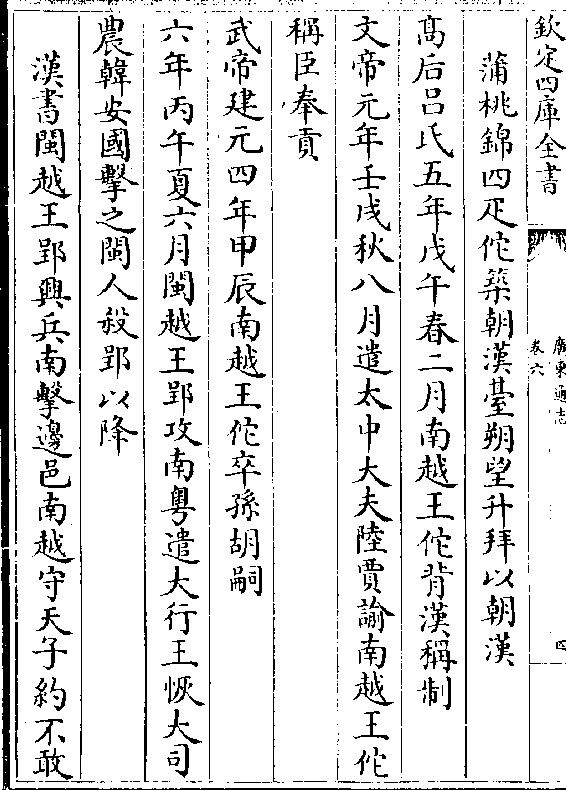 欽定四庫全書
廣東通志
卷六
四
蒲桃錦四疋佗築朝漢臺朔望升拜以朝漢
髙后吕氏五年戊午春二月南越王佗背漢稱制
文帝元年壬戌秋八月遣太中大夫陸賈諭南越王佗
稱臣奉貢
武帝建元四年甲辰南越王佗卒孫胡嗣
六年丙午夏六月閩越王郢攻南粤遣大行王恢大司
農韓安國擊之閩人殺郢以降
漢書閩越王郢興兵南擊邊邑南越守天子約不敢